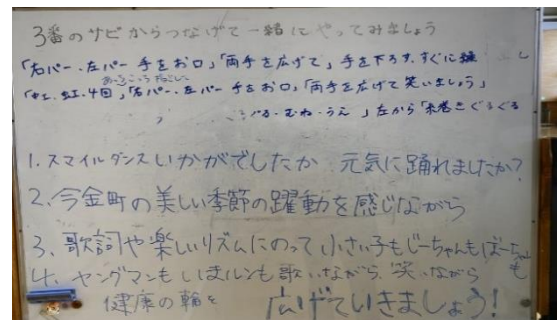 3番のサビからつなげて一緒にやってみましょう
「右パー、左パー 手をお口」「両手を広げて」手を下ろす、すぐに
「虹、虹、4回」「右パー、左パー 手をお口」「両手を広げて笑いましょう」
むね・うえ」左から「糸巻きぐるぐる
1. スマイルダンスいかがでしたか 元気に踊れましたか?
2. 今金町の美しい季節の躍動を感じながら
3. 歌詞や楽しいリズムにのって小さい子もじーちゃんもばーちゃんも
4. ヤングマンも 歌いながら、笑いながら
健康の輪を 広げていきましょう!